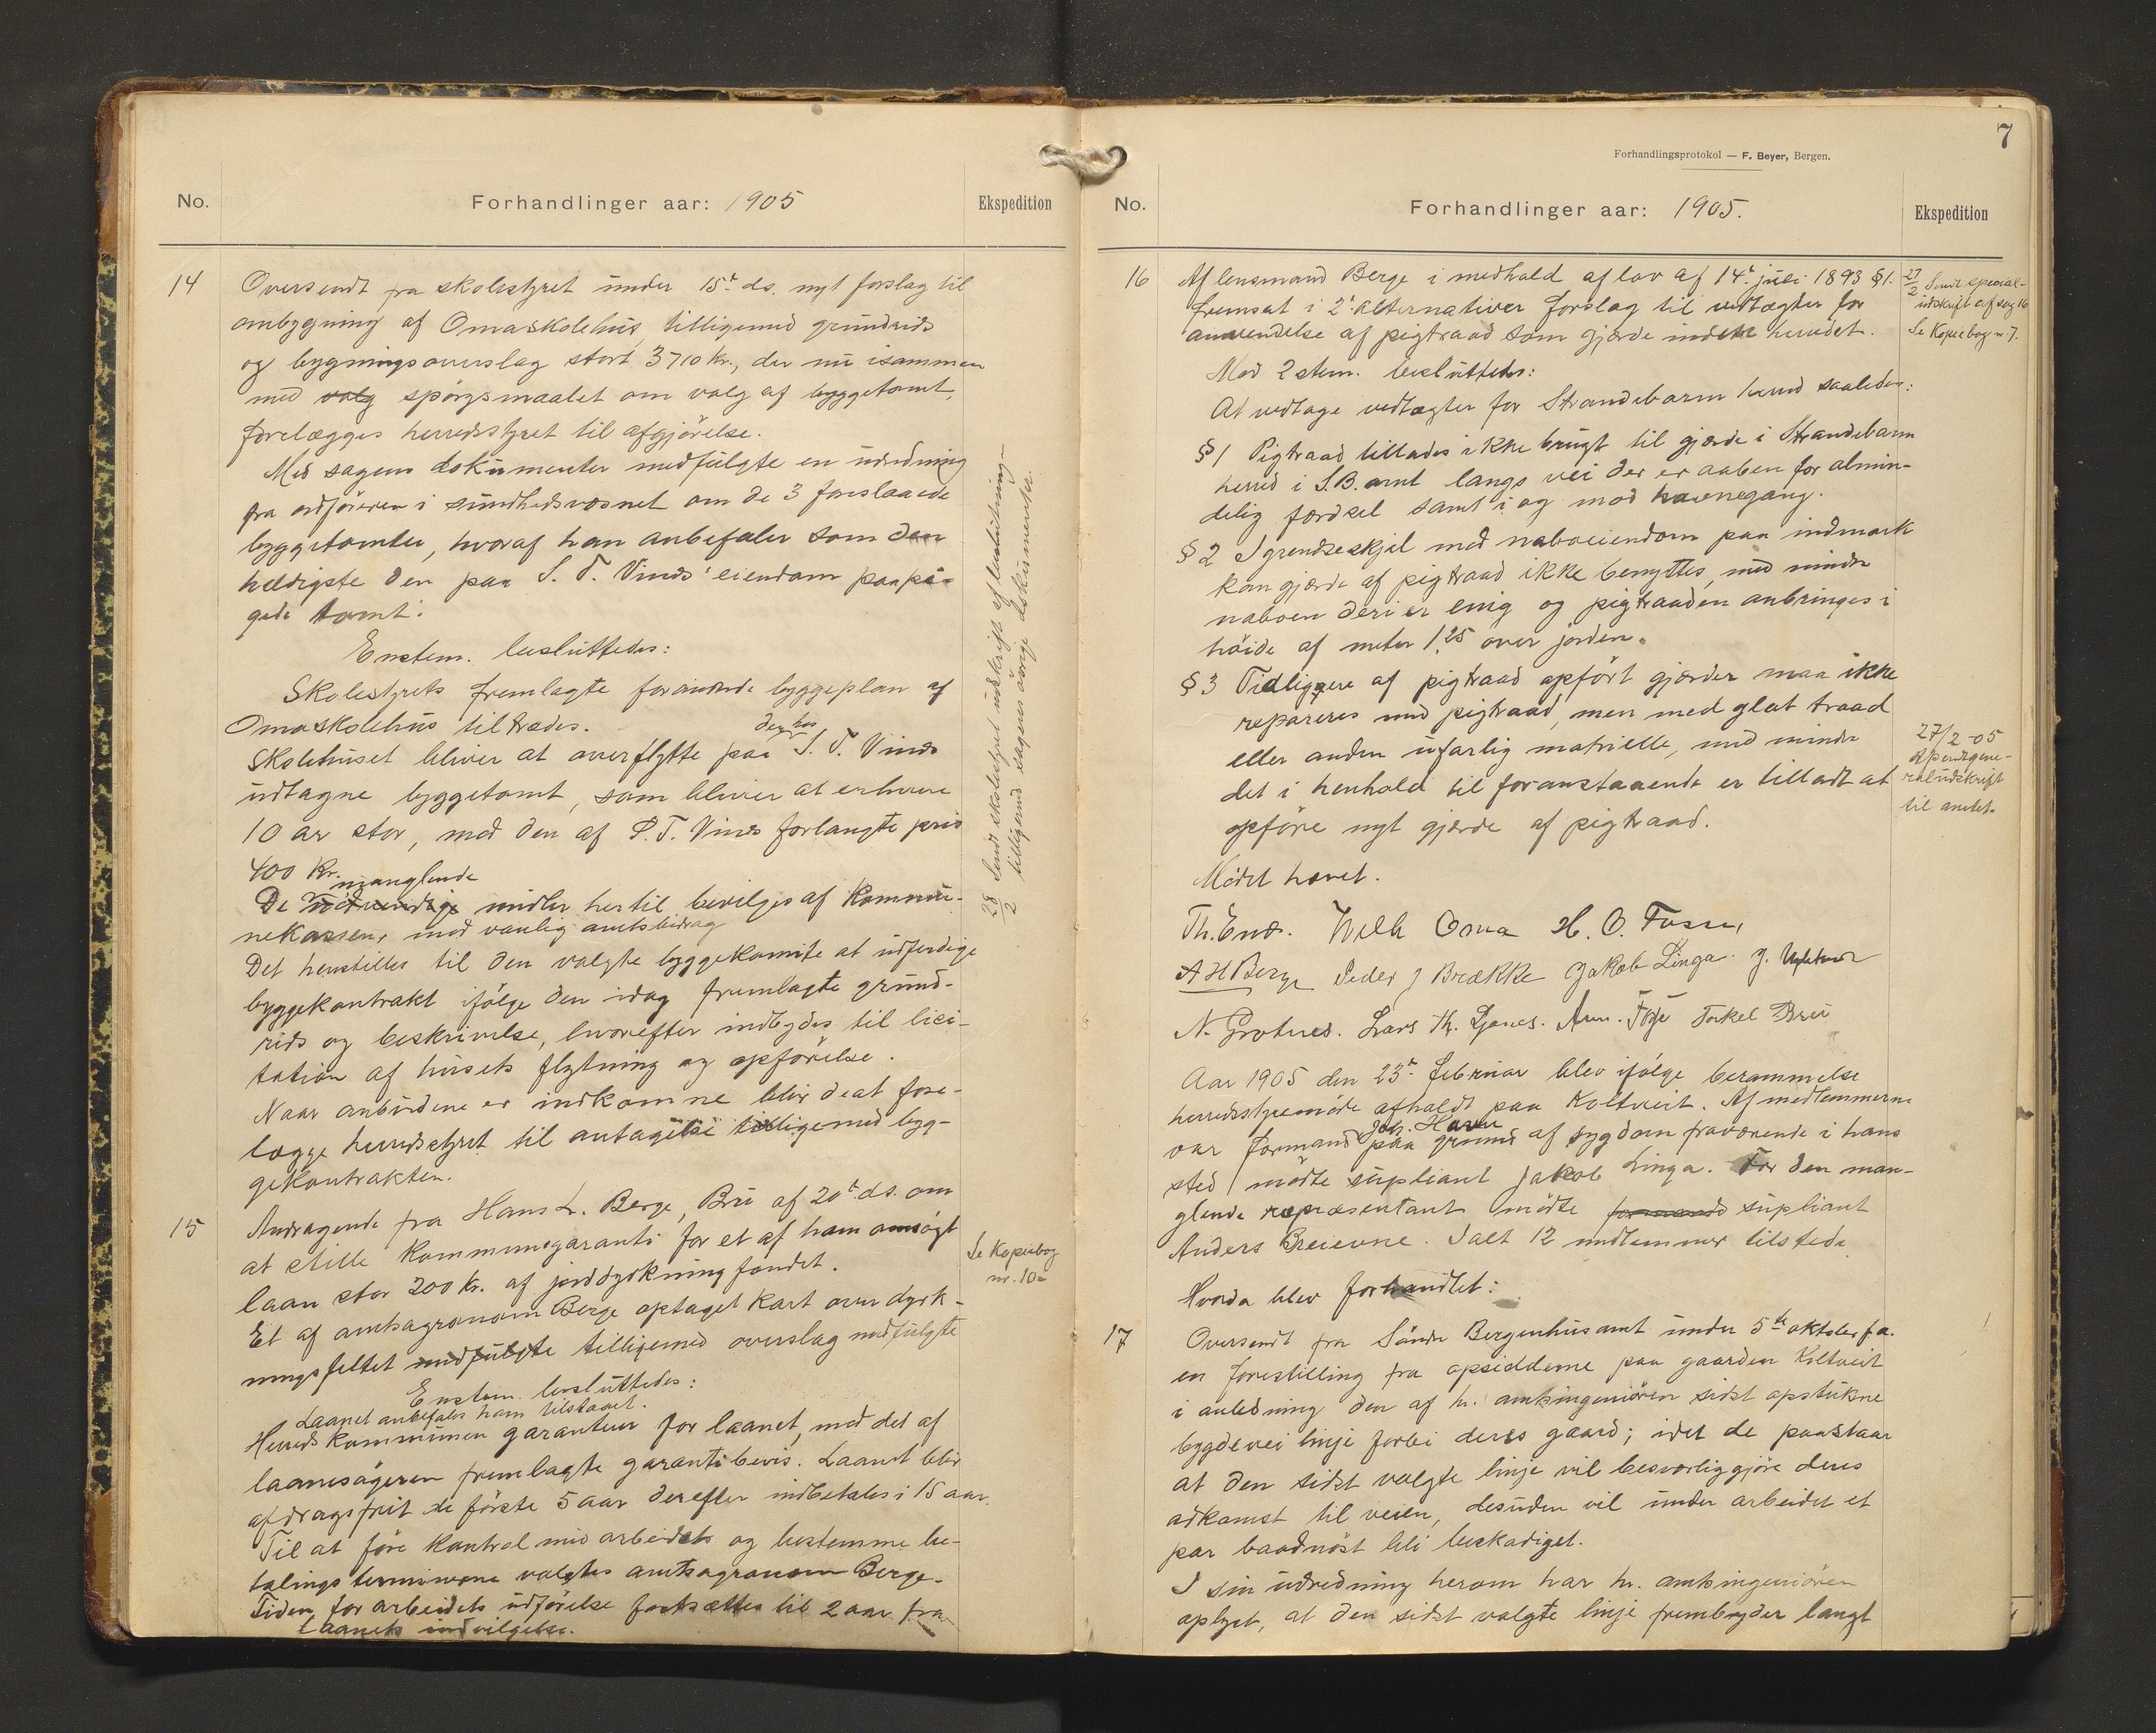 No.
Forhandlinger aar: 1905
Ekspedition
14
Oversendt fra skolestyret under 15de ds. nyt forslag til
ombygning af Omaskolehus, tilligemed grundrids
og bygningsoverslag stort 3710 kr., der nu isammen
med valg spörgsmaalet om valg af byggetomt,
forelægges herredsstyret til afgjörelse.
Med sagens dokumenter medfulgte en udredning
fra ordföreren i sundhedsvæsnet om de 3 foreslaaede
byggetomter, hvoraf han anbefaler som den
heldigste den paa S. T. Vinds' eiendom paape-
gede tomt.
Enstem. besluttedes:
Skolestyrets fremlagte forandrede byggeplan af
Omaskolehus tiltrædes.
den hos
Skolehuset bliver at overflytte paa S. T. Vinds
udtagne byggetomt, som bliver at erhverve
10 ar stor, med den af S. T. Vinds forlangte pris
400 Kr.
manglende
De nödvendige midler hertil bevilges af Kommu-
nekassen, med vanlig amtsbidrag
Det henstilles til den valgte byggekomite at udferdige
byggekontrakt ifölge den idag fremlagte grund-
rids og beskrivelse, hvorefter indbydes til lici-
tation af husets flytning og opförelse.
Naar anbudene er indkomne blir de at fore-
lægge herredsstyret til antagelse tilligemed byg-
gekontrakten.
28/2 Sendt skolestyret udskrift af beslutning-
tilligemed sagens övrige dokumenter.
15
Andragende fra Hans L. Berge, Bru af 20de ds. om
at stille Kommunegaranti for et af ham ansögt
laan stor 200 kr. af jorddyrkningsfondet.
Et af amtsagronom Berge optaget kart over dyrk-
ningsfeltet medfulgte tilligemed overslag medfulgte
Se Kopiebog
nr. 10
Enstem. besluttedes:
Laanet anbefales ham tilstaaet.
Herredskommunen garanterer for laanet, med det af
laanesögeren fremlagte garantibevis. Laanet blir
afdragsfrit de förste 5 aar derefter indbetales i 15 aar.
Til at före kontrol med arbeidets og bestemme be-
talings terminerne valgtes amtsagronom Berge.
Tiden for arbeidets udförelse fastsættes til 2 aar fra
laanets indvilgelse.
7
Forhandlingsprotokol — F. Beyer, Bergen.
No.
Forhandlinger aar: 1905.
Ekspedition
16
Af lensmand Berge i medhold af lov af 14de juli 1893 § 1.
fremsat i 2 alternativer forslag til vedtægter for
anvendelse af pigtraad som gjærde inden herredet.
27/2 Sendt special-
udskrift af sag 16
Se Kopiebog nr. 7.
Mod 2 stem. besluttedes:
At vedtage vedtægter for Strandebarm herred saaledes:
§ 1 Pigtraad tillades ikke brugt til gjærde i Strandebarm
herred i S.B. amt langs vei der er aaben for almin-
delig færdsel samt i og mod havnegang.
§ 2 I grendseskjel med naboeiendom paa indmark
kan gjærde af pigtraad ikke benyttes, med mindre
naboen deri er enig og pigtraaden anbringes i
höide af meter 1,25 over jorden.
§ 3 Tidligere af pigtraad opfört gjærder maa ikke
repareres med pigtraad, men med glat traad
eller anden ufarlig matrielle, med mindre
det i henhold til foranstaaende er tilladt at
opföre nyt gjærde af pigtraad.
27/2-05
Afsendt gene-
raludskrift
til amtet.
Mödet hævet.
Th. Enæs. Wilh Oma H. O. Fosse,
A H Berge Peder J Brække Jakob Linga. J.
N. Grotnes. Lars Th. Torkel Bru
Aar 1905 den 23de februar blev ifölge berammelse
herredsstyremöde afholdt paa Koltveit. Af medlemmerne
Joh. Havn
var formand paa grund af sygdom fraværende i hans
sted mödte supliant Jakob Linga. For den man-
glende repræsentant mödte formand supliant
Anders Breievne. Ialt 12 medlemmer tilstede.
Hvorda blev forhandlet:
17
Oversendt fra Söndre Bergenhus amt under 5te oktober f.a.
en forestilling fra opsidderne paa gaarden Koltveit
i anledning den af hr. amtsingeniören sidst opstukne
bygdevei linje forbi deres gaard; idet de paastaar
at den sidst valgte linje vil besværliggjöre deres
adkomst til veien, desuden vil under arbeidet et
par baadnöst bli beskadiget.
I sin udredning herom har hr. amtsingeniören
oplyst, at den sidst valgte linje frembyder langt